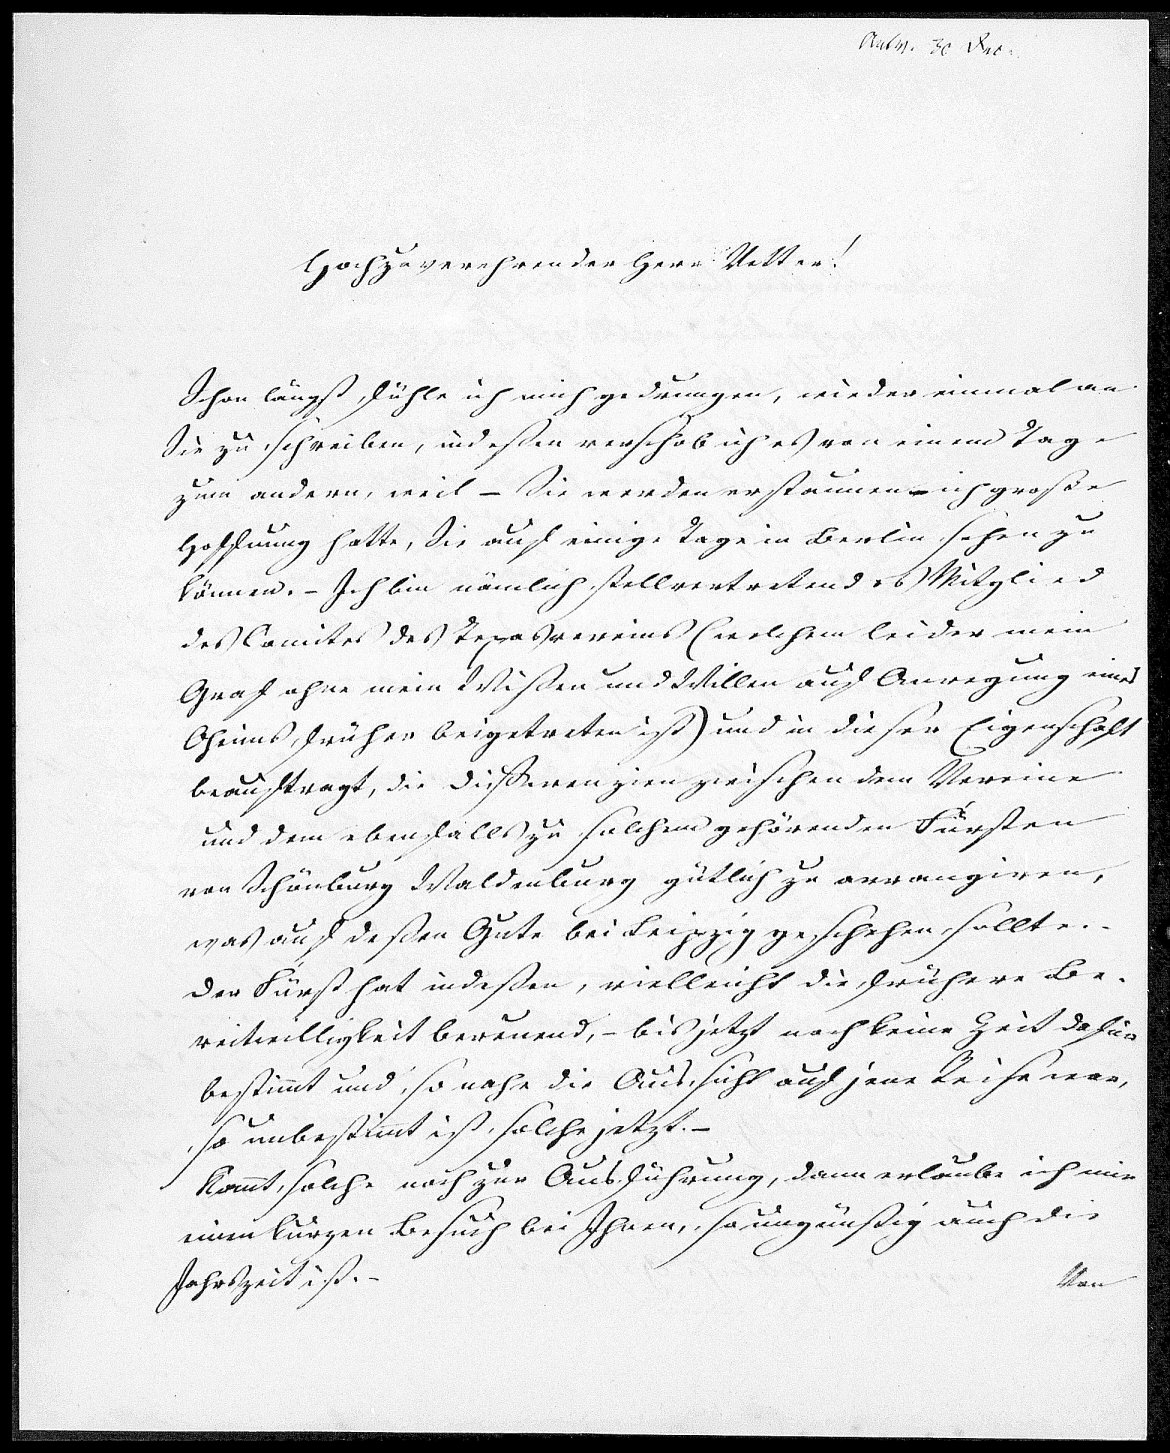 Antw. 30 Dec.
Hochzuverehrender Herr Vetter!
Schon längst fühle ich mich gedrungen, wieder einmal an
Sie zu schreiben, indeßen verschob ich es von einem Tage
zum andern, weil – Sie werden erstaunen – ich große
Hoffnung hatte, Sie auf einige Tage in Berlin sehen zu
können. – Ich bin nämlich stellvertretendes Mitglied
des Comites des Texasvereins (welchem leider mein
Graf ohne mein Wißen und Willen auf Anregung eines
Oheims früher beigetreten ist) und in dieser Eigenschaft
beauftragt, die Differenzien zwischen dem Vereine
und dem ebenfalls zu solchem gehörenden Fürsten
von Schönburg Waldenburg gütlich zu arrangiren,
was auf deßen Gute bei Leipzig geschehen sollte. –
Der Fürst hat indeßen, vielleicht die frühere Be-
reitwilligkeit bereuend, – bis jetzt noch keine Zeit dafür
bestimmt und, so nahe die Aussicht auf jene Reise war,
so unbestimmt ist solche jetzt. –
Kommt solche noch zur Ausführung, dann erlaube ich mir
einen kurzen Besuch bei Ihnen, so ungünstig auch die
Jahrszeit ist. –
Von